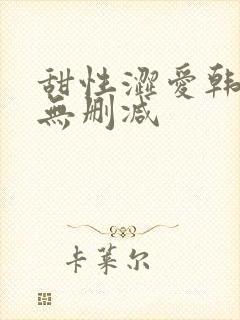 甜性澀愛韩
無删减
卡莱尔